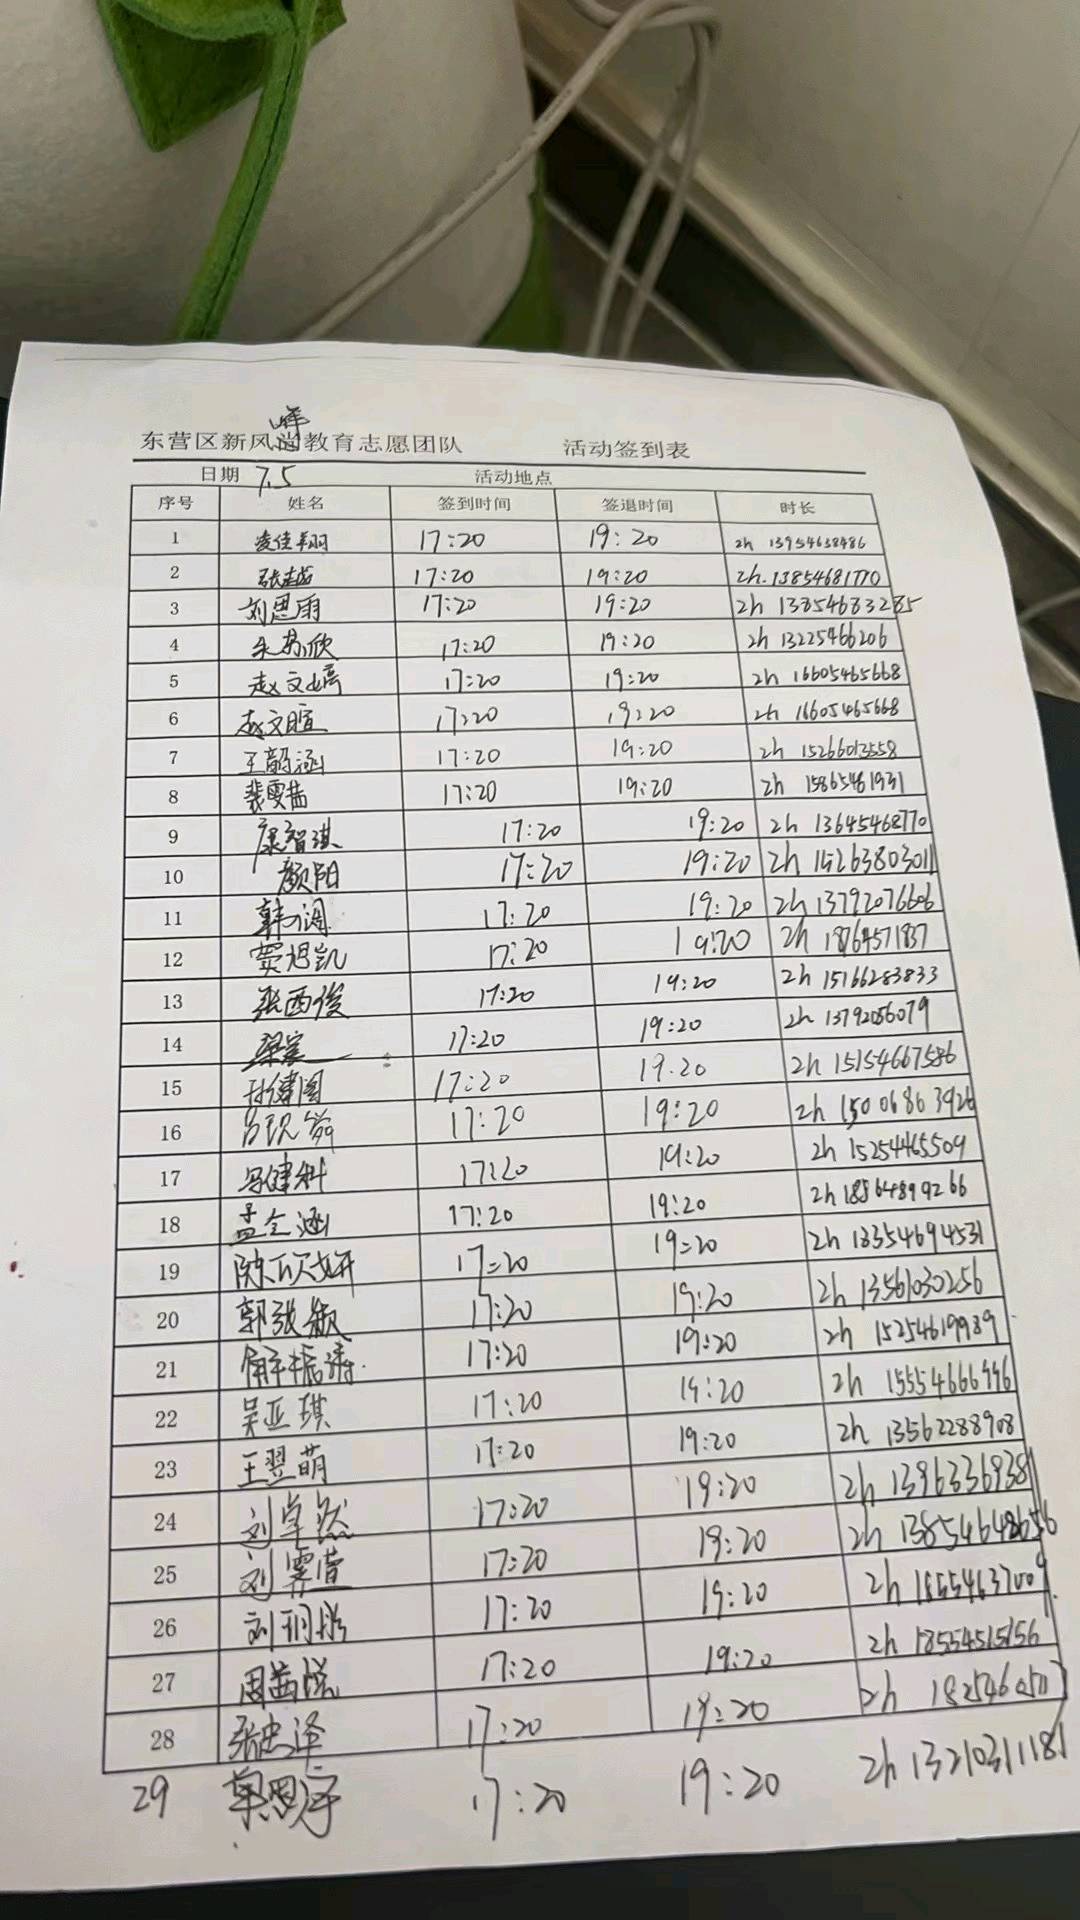 东营区新风尚教育志愿团队 活动签到表
日期 7.5 活动地点
序号 姓名 签到时间 签退时间 时长
1 凌佳翔 17:20 19:20 2h 13954638486
2 张越 17:20 19:20 2h. 13854681770
3 刘思雨 17:20 19:20 2h 13854683285
4 朱苏欣 17:20 19:20 2h 13225466206
5 赵文嫱 17:20 19:20 2h 16605465668
6 赵文暄 17:20 19:20 2h 16605465668
7 王韵涵 17:20 19:20 2h 15266013558
8 裴雯茜 17:20 19:20 2h 15865461931
9 康智淇 17:20 19:20 2h 13645468770
10 颜阳 17:20 19:20 2h 15263803011
11 韩润 17:20 19:20 2h 13792076606
12 贾旭凯 17:20 19:20 2h 18764571837
13 张西俊 17:20 19:20 2h 15166283833
14 梁宸 17:20 19:20 2h 13792056079
15 17:20 19:20 2h 15154667586
16 17:20 19:20 2h 15006863926
17 马健科 17:20 19:20 2h 15254465509
18 孟令涵 17:20 19:20 2h 18564899266
19 陈欣妍 17:20 19:20 2h 13354694531
20 郭张颖 17:20 19:20 2h 13561030256
21 解振涛 17:20 19:20 2h 15254619989
22 吴亚琪 17:20 19:20 2h 15554666996
23 王翌萌 17:20 19:20 2h 13562288908
24 刘卓然 17:20 19:20 2h 13963369381
25 刘霁萱 17:20 19:20 2h
26 刘玥彤 17:20 19:20 2h 18554637009
27 周茜悦 17:20 19:20 2h 18554515156
28 张忠泽 17:20 19:20 2h
29 17:20 19:20 2h 13210311181